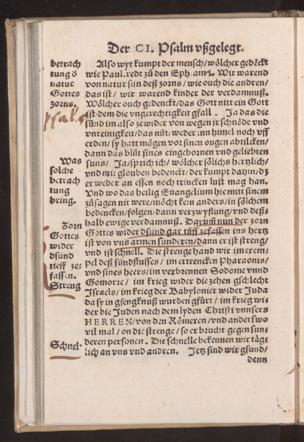 Der CI. Psalm vßgelegt.
betrach
tung ď
natur
Gottes
zorns.
Was
solche
betrach
tung
bring.
Zorn
Gottes
wider
dsünd
tieff ze
fassen.
Streng
Schnel-
Also wyt kumpt der mensch/wölcher gedēckt
wie Paul. redt zů den Eph. am 2. Wir warend
von natur sun deß zorns/ wie ouch die andren/
das ist/ wir warend kinder der verdamnuß.
Wölcher ouch gedenckt/ das Gott nitt ein Gott
ist dem die vngerechtigkeit gfall. Ja das die
sünd im also zewider von wegen jr schnöde vnd
vnreinigkeit/ das nüt/ weder im himel noch vff
erden/ sy hatt mögen vor sinen ougen abtilcken/
dann das blůt sines eingebornen vnd geliebten
suns/ Ja/ sprich ich/ wölcher sölichs hertzlich/
vnd mit glouben bedenckt/ der kumpt dahin/ dz
er weder an essen noch trincken lust mag han.
Vnd wo das heilig Euangelium hie mitt sinem
zůsagen nit were/ möcht kein anders/ in sölchem
bedencken/ folgen/ dann verzwyflung/ vnd deß-
halb ewige verdamnuß. Darzů nun der zorn
Gottes wider dsünd gar tüff zefassen ins hertz
ist von vns armen sünderen/ dann er ist streng/
vnd ist schnell. Die strenge hand wir im exem-
pel deß sündflusses/ im ertrencken Pharaonis/
vnd sines heers/ im verbrennen Sodome vnnd
Gomorre/ im krieg wider die zehen gschlecht
Israels/ im krieg der Babylonier wider Juda
da sy in gfengknuß wurden gfürt/ im krieg wi
der die Juden nach dem lyden Christi vnnsers
HERREN/ von den Römeren/ vnd anderswo
vil mal/ on die strenge/ so er brucht gegen sun-
deren personen. Die schnelle bekennen wir täg-
lich an vns vnd andren. Jetz sind wir gsund/
denn